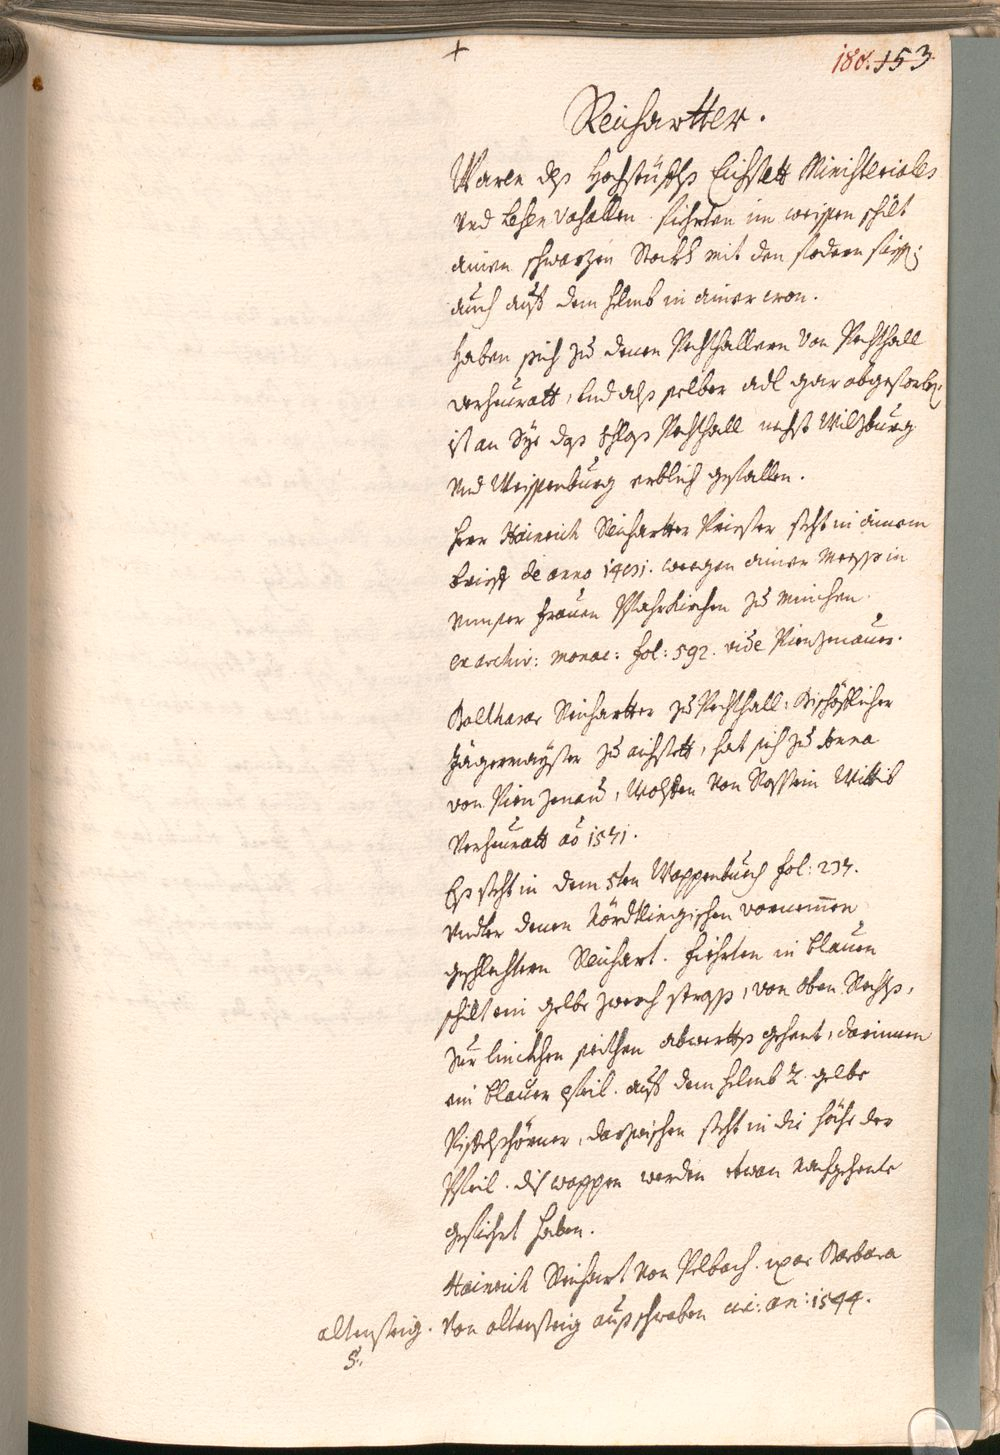 +
180. 153
Reicharter.
Waren deß Hochstüffts Eichstett Ministeriales
Und Lehen Vasallen. fiehrten im weissen schilt
ainen schwarzen Stockh mit den fodern fiessen;
auch auff dem Helmb in ainer cron.
Haben sich zu denen Pechthallern Von Pechthall
verheuratt, Und alß selber adl gar abgestorben
ist an Sye daß schloß Pechthall nechst Wilzburg
Und Weissenburg erblich gefallen.
Herr Hainrich Reicharter Priester steht in ainem
brieff de anno 1491. weegen ainer Meeß in
Unnser Frauen Pfahrkirchen zu Minchen.
ex archiv: monac: fol: 592. vide Pienzenauer.
Balthasar Reicharter zu Pechthall. Bischöfflicher
Jägermayster zu aichstett, hat sich zu Anna
von Pienzenau, Wolffen Von Wittib
Verheuratt ao 1571.
Eß steht in dem 5ten Wappenbuech fol: 237.
Undter denen Nördlingischen vornemmen
geschlechtern Reichart. fiehrten in blauen
schilt ein gelbe zwerch strass, von oben Rechts,
zur linckhen seithen abwertß gehent, darinnen
ein blauer pfeil. auff dem Helmb 2. gelbe
Pifflshörner, darzwischen steht in die höhe der
Pfeil. diß wappen werden etwan nachgehents
gefiehrt haben.
Hainrich Reichart Von Pelbach. uxor Barbara
altensteig. Von altensteig auß schwaben an: 1544.
S.